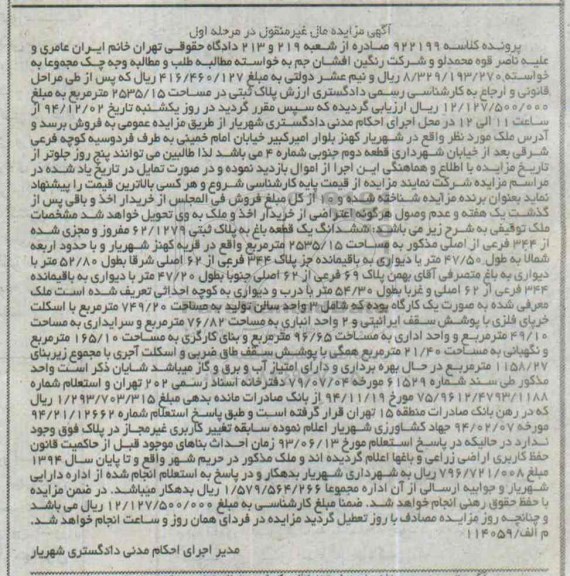 آگهی مزایده مال غیرمنقول در مرحله اول
پرونده کلاسه ۹۲۲۱۹۹ صادره از شعبه ۲۱۹ و ۲۱۳ دادگاه حقوقی تهران خانم ایران عامری و
علیه ناصر قوه محمدلو و شرکت رنگین افشان جم به خواسته مطالبه طلب و مطالبه وجه چک مجموعا به
خواسته ۸/۳۲۹/۱۹۳/۲۷۰ ریال و نیم عشر دولتی به مبلغ ۴۱۶/۴۶۰/۱۲۷ ریال که پس از طی مراحل
قانونی و ارجاع به کارشناسی رسمی دادگستری ارزش پلاک ثبتی در مساحت ۲۵۳۵/۱۵ مترمربع به مبلغ
۱۲/۱۲۷/۵۰۰/۰۰۰ ریال ارزیابی گردیده که سپس مقرر گردید در روز یکشنبه تاریخ ۹۴/۱۲/۰۲ از
ساعت ۱۱ الی ۱۲ در محل اجرای احکام مدنی دادگستری شهریار از طریق مزایده عمومی به فروش برسد و
آدرس ملک مورد نظر واقع در شهریار کهنز بلوار امیرکبیر خیابان امام خمینی به طرف فردوسیه کوچه فرعی
شرقی بعد از خیابان شهرداری قطعه دوم جنوبی شماره ۴ می باشد لذا طالبین می توانند پنج روز جلوتر از
تاریخ مزایده با اطلاع و هماهنگی این اجرا از اموال بازدید نموده و در صورت تمایل در تاریخ یاد شده در
مراسم مزایده شرکت نمایند مزایده از قیمت پایه کارشناسی شروع و هر کسی بالاترین قیمت را پیشنهاد
نماید بعنوان برنده مزایده شناخته شده و ۱۰٪ از کل مبلغ فروش فی المجلس از خریدار اخذ و باقی پس از
گذشت یک هفته و عدم وصول هرگونه اعتراضی از خریدار اخذ و ملک به وی تحویل خواهد شد مشخصات
ملک توقیفی به شرح زیر می باشد: ششدانگ یک قطعه باغ به پلاک ثبتی ۶۲/۱۲۷۹ مفروز و مجزی شده
از ۳۴۴ فرعی از اصلی مذکور به مساحت ۲۵۳۵/۱۵ مترمربع واقع در قریه کهنز شهریار و با حدود اربعه
شمالا به طول ۴۷/۵۰ متر با دیواری به باقیمانده جز پلاک ۳۴۴ فرعی از ۶۲ اصلی شرقا بطول ۵۲/۸۰ متر با
دیواری به باغ متصرفی آقای بهمن پلاک ۶۹ فرعی از ۶۲ اصلی جنوبا بطول ۴۷/۲۰ متر با دیواری به باقیمانده
۳۴۴ فرعی از ۶۲ اصلی و غربا بطول ۵۴/۳۰ متر با درب و دیواری به کوچه احداثی تعریف شده است ملک
معرفی شده به صورت یک کارگاه بوده که شامل ۳ واحد سالن تولید به مساحت ۷۴۹/۲۰ مترمربع با اسکلت
خرپای فلزی با پوشش سقف ایرانیتی و ۲ واحد انباری به مساحت ۷۶/۸۲ مترمربع و سرایداری به مساحت
۴۹/۱۰ مترمربع و واحد اداری به مساحت ۹۶/۶۵ مترمربع و بنای کارگری به مساحت ۱۶۵/۱۰ مترمربع
و نگهبانی به مساحت ۲۱/۴۰ مترمربع همگی با پوشش سقف طاق ضربی و اسکلت آجری با مجموع زیربنای
۱۱۵۸/۲۷ مترمربع در حال بهره برداری و دارای امتیاز آب و برق و گاز میباشد شایان ذکر است واحد
مذکور طی سند شماره ۶۱۵۲۹ مورخه ۷۹/۰۷/۰۴ دفترخانه اسناد رسمی ۲۰۲ تهران و استعلام شماره
۷۵/۹۶۱۲/۴۷۹۳/۱۱۸۸ مورخ ۹۴/۱۱/۱۹ از بانک صادرات مانده بدهی مبلغ ۱/۲۹۳/۷۰۳/۳۱۵ ریال
که در رهن بانک صادرات منطقه ۱۵ تهران قرار گرفته است و طبق پاسخ استعلام شماره ۹۴/۲۱/۱۲۶۶۲
مورخه ۹۴/۰۲/۰۷ جهاد کشاورزی شهریار اعلام نموده سابقه تغییر کاربری غیرمجاز در پلاک فوق وجود
ندارد در حالیکه در پاسخ استعلام مورخ ۹۳/۰۶/۱۳ زمان احداث بناهای موجود قبل از حاکمیت قانون
حفظ کاربری اراضی زراعی و باغها اعلام گردیده اند و ملک مذکور در حریم شهر واقع و تا پایان سال ۱۳۹۴
مبلغ ۷۹۶/۷۲۱/۰۰۸ ریال به شهرداری شهریار بدهکار و در پاسخ به استعلام انجام شده از اداره دارایی
شهریار و جوابیه ارسالی از آن اداره مجموعا ۱/۵۷۹/۵۶۴/۲۶۶ ریال بدهکار میباشد. در ضمن مزایده
با حفظ حقوق رهنی انجام خواهد شد. ضمنا مبلغ کارشناسی به مبلغ ۱۲/۱۲۷/۵۰۰/۰۰۰ ریال می باشد
و چنانچه روز مزایده مصادف با روز تعطیل گردید مزایده در فردای همان روز و ساعت انجام خواهد شد.
م الف/۱۱۴۰۵۹
مدیر اجرای احکام مدنی دادگستری شهریار